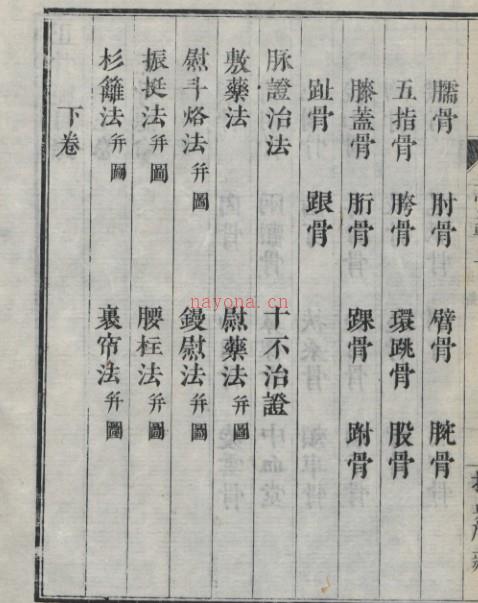 臑骨 肘骨 臂骨 腕骨
五指骨 胯骨 環跳骨 股骨
膝蓋骨 胻骨 踝骨 跗骨
趾骨 跟骨
脉證治法 十不治證
敷藥法 慰藥法并圖
慰斗烙法并圖 鏝慰法并圖
振挺法并圖 腰柱法并圖
杉籬法并圖 裹帘法并圖
下卷
nayona.cn